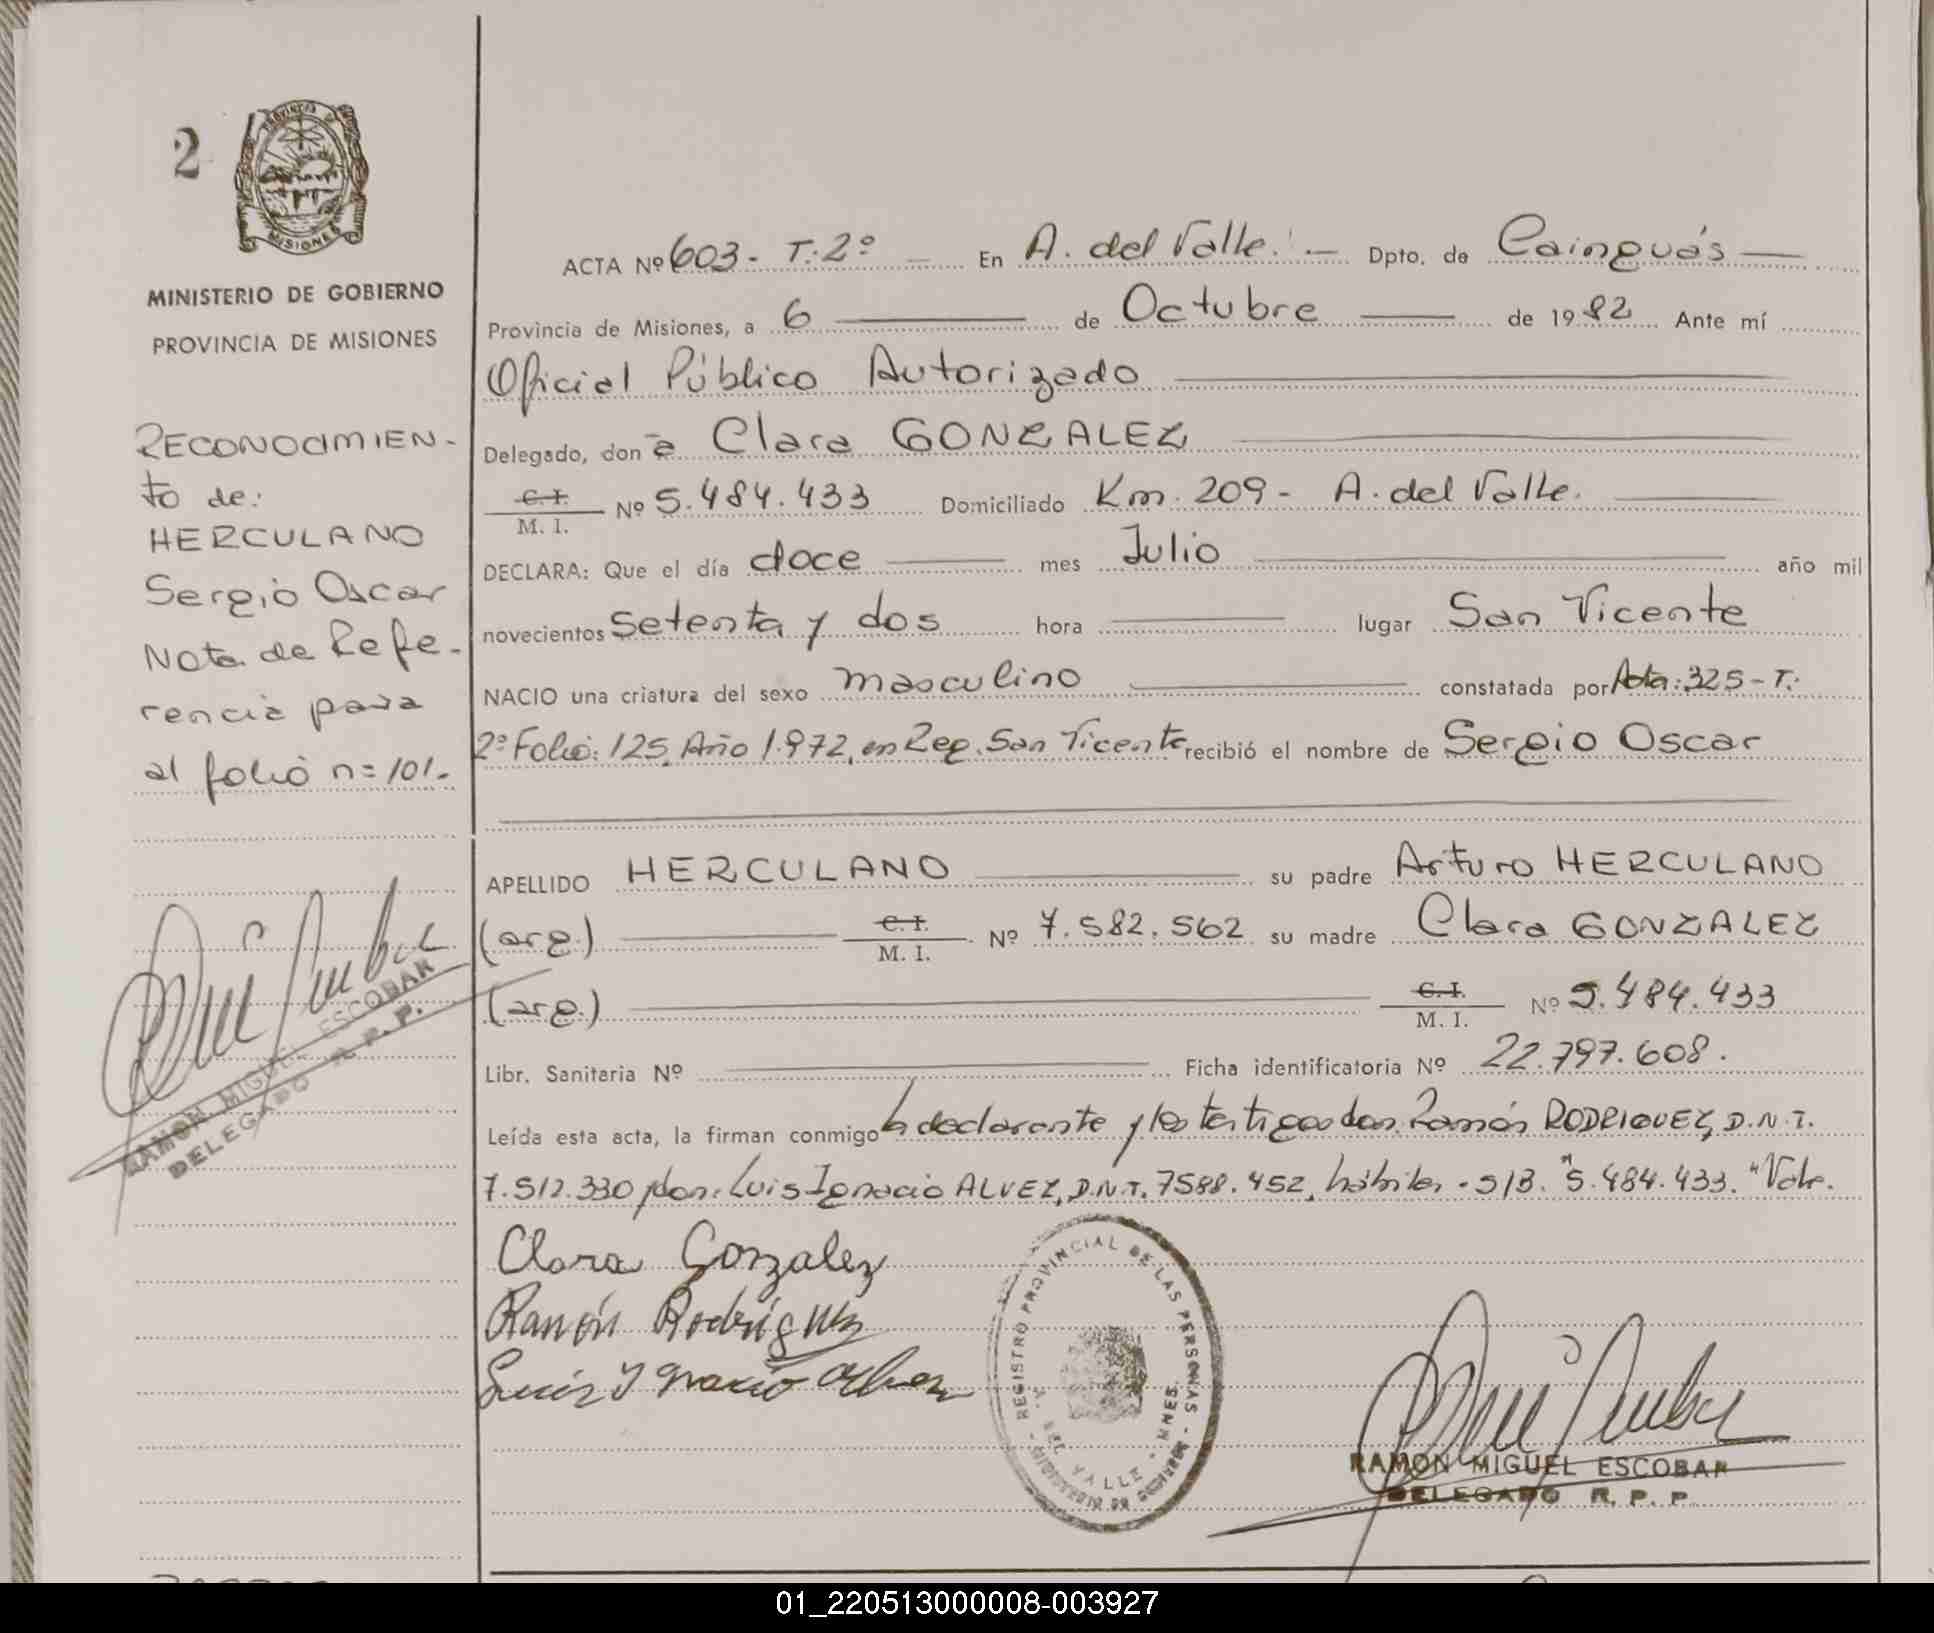 2
PROVINCIA DE
MISIONES
MINISTERIO DE GOBIERNO
PROVINCIA DE MISIONES
RECONOCIMIEN-
to de:
HERCULANO
Sergio Oscar
Nota de Refe-
rencia para
al folio n= 101.
RAMON MIGUEL ESCOBAR
DELEGADO R. P. P.
ACTA Nº 603 - T: 2º — En A. del Valle. — Dpto. de Cainguás —
Provincia de Misiones, a 6 — de Octubre — de 1982 Ante mí
Oficial Público Autorizado
Delegado, don a Clara GONZALEZ
C. I.
M. I. Nº 5.484.433 Domiciliado Km. 209 - A. del Valle.
DECLARA: Que el día doce — mes Julio — año mil
novecientos setenta y dos hora — lugar San Vicente
NACIO una criatura del sexo masculino — constatada por Acta: 325 - T:
2º Folio: 125, Año 1.972, en Reg. San Vicente recibió el nombre de Sergio Oscar
APELLIDO HERCULANO — su padre Arturo HERCULANO
(arg.) — C. I. / M. I. Nº 7.582.562 su madre Clara GONZALEZ
(arg.) — C. I. / M. I. Nº 5.484.433
Libr. Sanitaria Nº — Ficha identificatoria Nº 22.797.608.
Leída esta acta, la firman conmigo la declarante y los testigos don Ramón RODRIGUEZ, D.N.I.
7.512.330 y don: Luis Ignacio ALVEZ, D.N.I. 7588.452, hábiles. - S/B. "5.484.433. "Vale.
Clara Gonzalez
Ramón Rodríguez
Luis Ygnacio Alvez
REGISTRO PROVINCIAL DE LAS PERSONAS
DEL VALLE - MNES.
RAMON MIGUEL ESCOBAR
DELEGADO R. P. P.
01_220513000008-003927